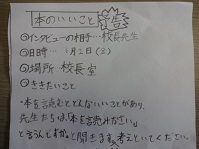 本のいいこと 報告
○インタビューの相手…校長先生
○日時… 月2日(火)
○場所…校長室
○ききたいこと
・本を読むとどんないいことがあり、
先生たちは「本を読みなさい。」
と言うんですかと聞きます。考えといてください。